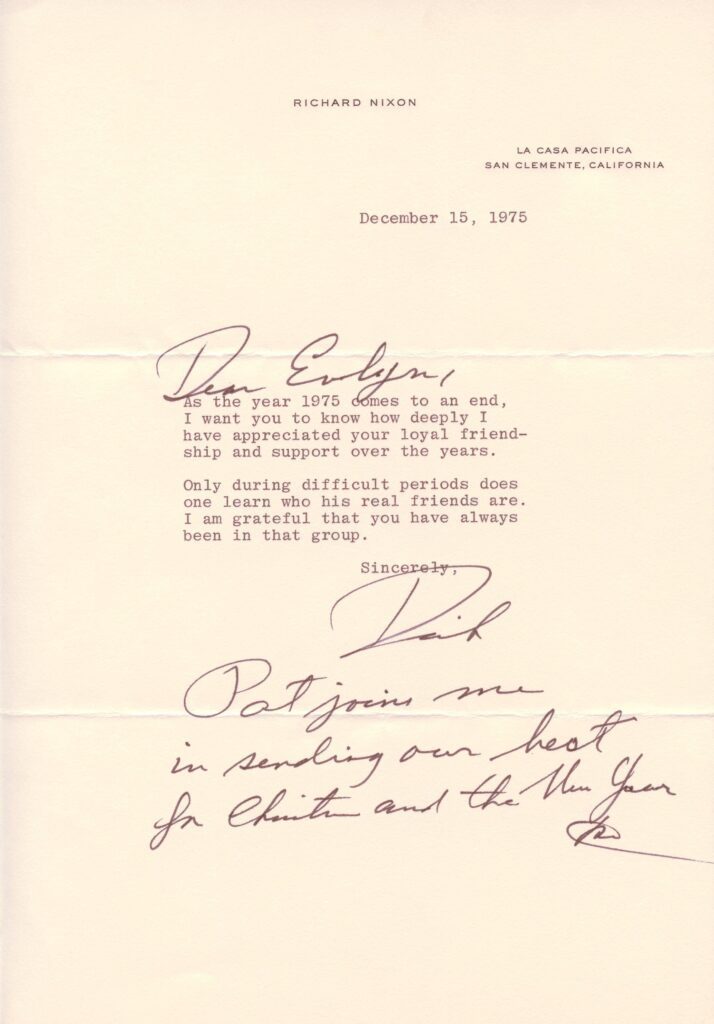 RICHARD NIXON
LA CASA PACIFICA
SAN CLEMENTE, CALIFORNIA
December 15, 1975
Dear Evlyn,
As the year 1975 comes to an end,
I want you to know how deeply I
have appreciated your loyal friend-
ship and support over the years.
Only during difficult periods does
one learn who his real friends are.
I am grateful that you have always
been in that group.
Sincerely,
Dick
Pat joins me
in sending our best
for Christmas and the New Year